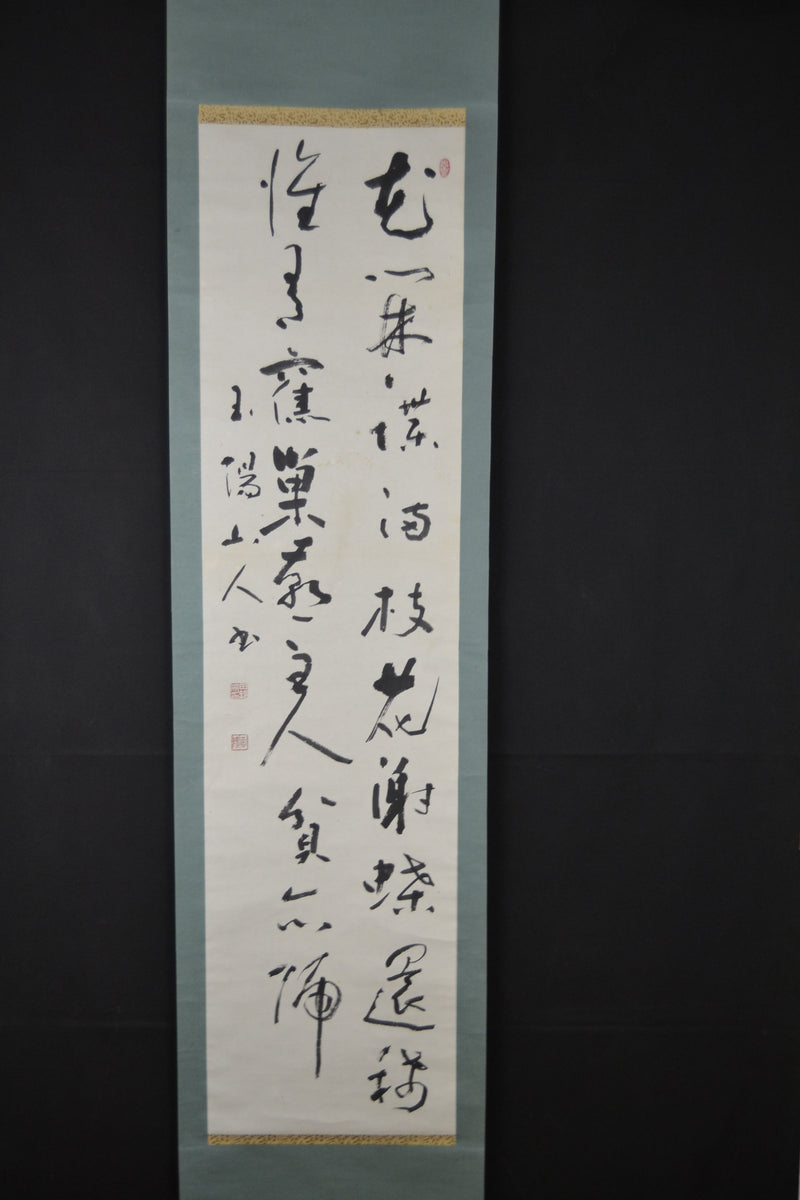 花開蝶満枝花謝蝶還稀
惟有舊巣燕主人貧亦帰
玉陽山人書